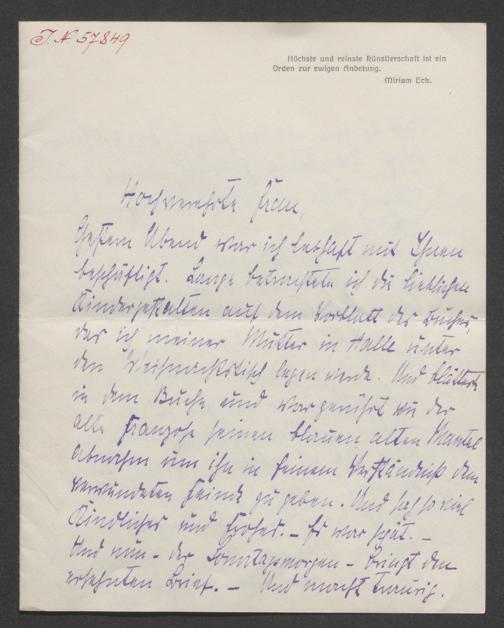 J. N. 57849
Höchste und reinste Künstlerschaft ist ein
Orden zur ewigen Anbetung.
Miriam Eck.
Hochverehrte Frau,
Gestern Abend war ich lebhaft mit Ihnen
beschäftigt. Lange betrachtete ich die lieblichen
Kindergestalten auf dem Vorblatt des Buches,
das ich meiner Mutter in Halle unter
den Weihnachtstisch legen werde. Und blätterte
in dem Buche und war gerührt wie der
alte Franzose seinen blauen alten Mantel
abnahm um ihn in feinem Verständnis dem
verwundeten Feinde zu geben. Und sah so viel
Kindliches und Großes. – Es war spät. –
Und nun – der Sonntagsmorgen – bringt den
ersehnten Brief. – Und macht traurig.